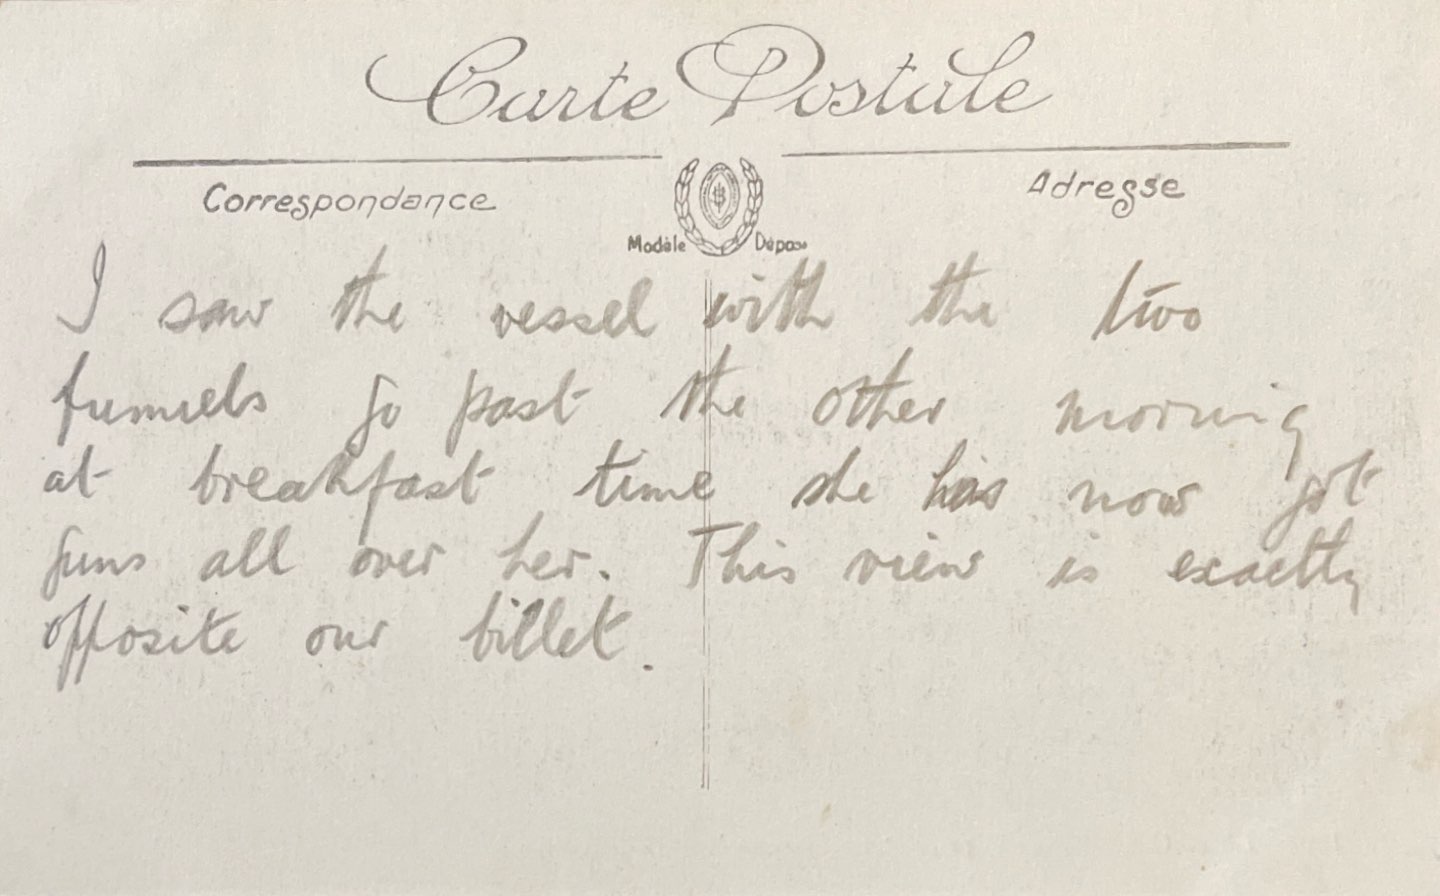 Carte Postale
Correspondance
Adresse
Modèle Déposé
I saw the vessel with the two
funnels go past the other morning
at breakfast time she has now got
guns all over her. This view is exactly
opposite our billet.